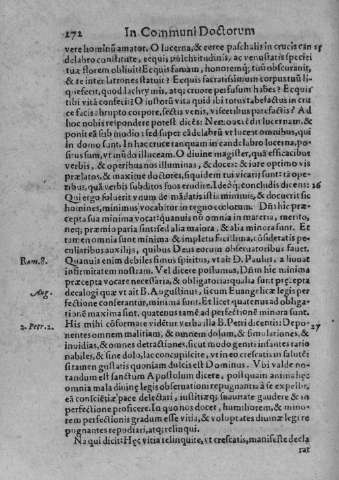 272 In Communi Doctorum
vere hominū amator. O lucerna, & cereę paschalis in crucis can 25
delabro constitute, ecquis pulchritudinis, ac venustatis speciei
tuæ florem obliuit? Ecquis famam, honoremq; tuū obscurauit,
& te inter latrones statuit? Ecquis sacratissimum corpus tuū li-
quefecit, quod lachrymis, atq; cruore persusum habes? Ecquis
tibi vitā consecit? O iustorū vita quid ibi totus tabefactus in cru
ce facis abrupto corpore, fectis venis, visceribus patefactis? Ad
hoc nobis respondere potest dicēs: Nemo accēdit lucernam, &
ponit eā sub modio: sed super cādelabrū vt luceat omnibus, qui
in domo sunt. In hac cruce tanquam in candelabro lucerna, po-
situs sum, vt mūdo illuceam. O diuine magister, quā efficacibus
verbis, & operibus nos illuminas, & doces: & iure optimo vis
prælatos, & maxime doctores, siquidem tui vicarij sunt: tā ope-
ribus, quā verbis subditos suos erudire. Ideóq; concludis dicens: 26
Qui ergo soluerit vnum de mādatis istis minimis, & docuerit sic
homines, minimus vocabitur in regno cœlorum. Dn̄s hic præ-
cepta sua minima vocat: quanuis nō omnia in mercia, merito,
neq; præmio paria sint: sed alia maiora, & alia minora sunt. Et
tamen omnia sunt minima & impletu facillima, cōsideratis pe-
culiaribus auxilijs, quibus Deus eorum obseruatoribus fauet.
Rom. 8. Quanuis enim debiles simus spiritus, vt ait D. Paulus, adiuuat
infirmitatem nostram. Vel dicere possumus, Dn̄m hic minima
præcepta vocare necessaria, & obligatoria: qualia sunt præcepta
Aug. decalogi quæ vt ait B. Augustinus, licet cum Euangelicæ legis per-
fectione conferantur, minima sunt. Et licet quatenus ad obliga-
tionē maxima sunt, quatenus tamē ad perfectionē minora sunt.
2. Petr. 2. His mihi cōformate videtur verba illa B. Petri dicentis: Depo- 27
nentes omnem malitiam, & omnem dolum, & simulationes, &
inuidias, & omnes detractiones, sicut modo geniti infantes ratio
nabiles, & sine dolo, lac concupiscite, vt in eo crescatis in salutē:
si tamen gustastis quoniam dulcis est Dominus. Vbi valde no-
tandum est sanctum Apostolum dicere, postquam animas hęc
omnia mala diuinę legis obseruationi repugnantiā à se expelle-
eā consciētiæ pace delectari, iustitiæq; suauitate gaudere & in
perfectione proficere. In quo nos docet, humiliorem, & mino-
rem perfectionis gradum esse vitia, & voluptates diuinæ legi re
pugnantes repudiari, atq; relinqui.
Na qui dicit: Hęc vitia relinquite, vt crescatis, manifeste decla
rat